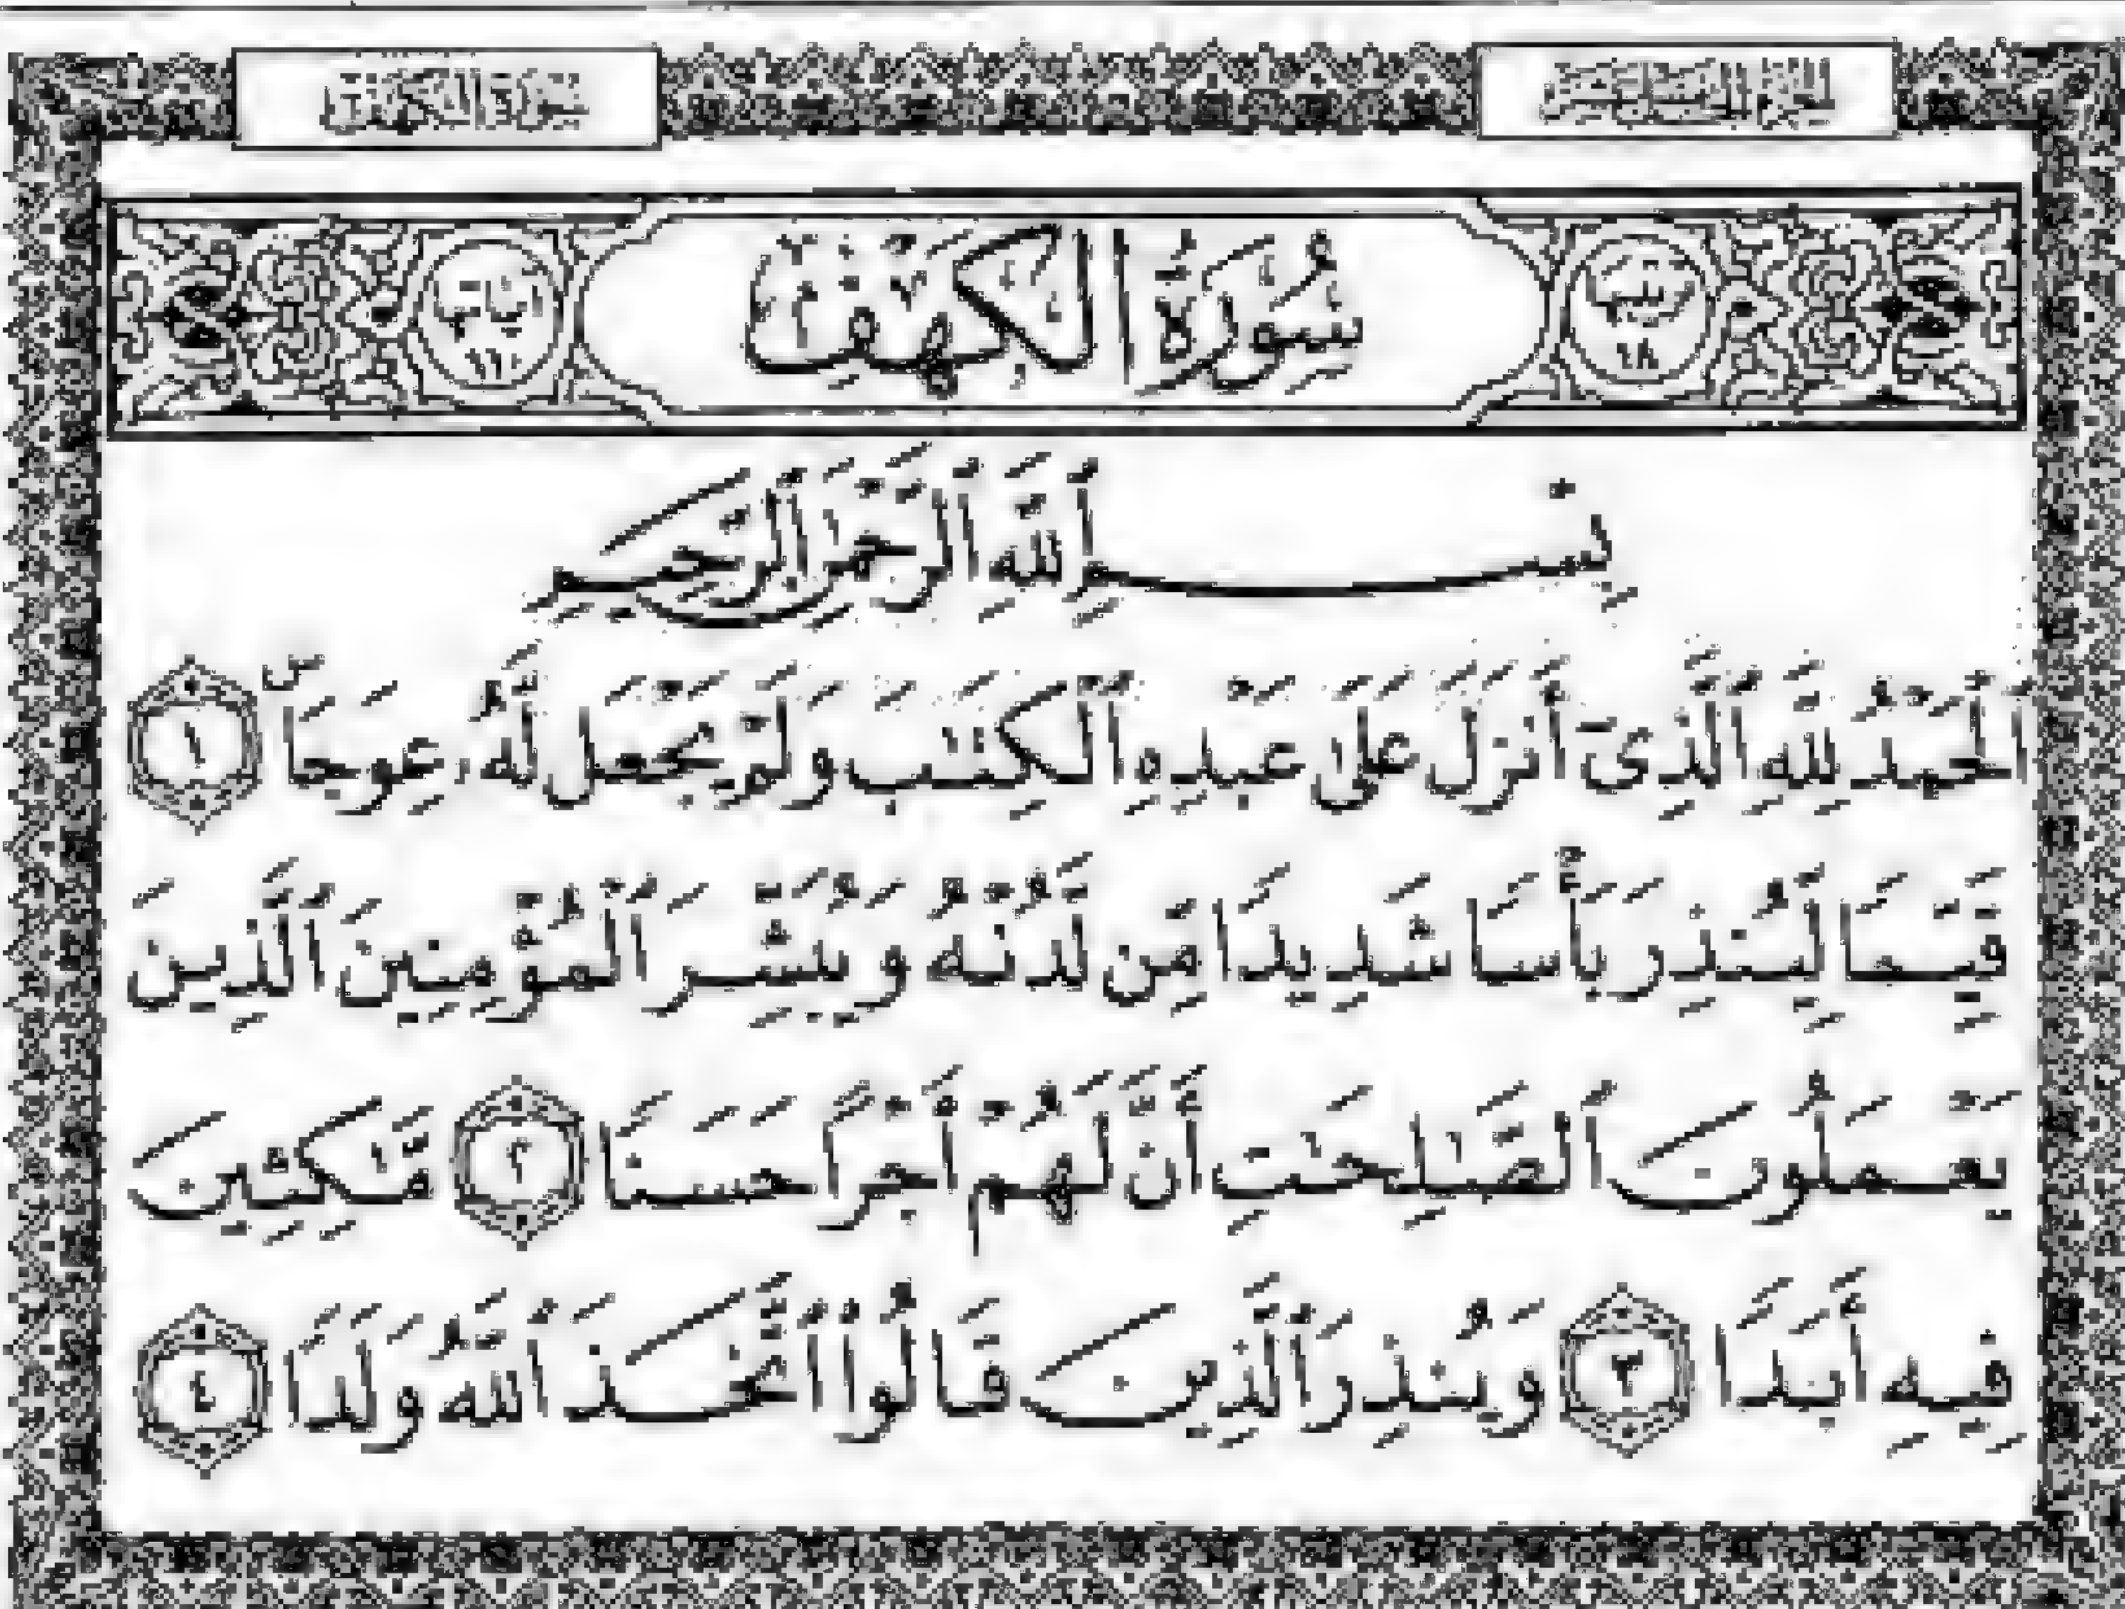 سورة الكهف
ترتيبها ١٨
سُورَةُ الكَهْفِ
آياتها ١١٠
بِسْمِ ٱللَّهِ ٱلرَّحْمَٰنِ ٱلرَّحِيمِ
ٱلْحَمْدُ لِلَّهِ ٱلَّذِىٓ أَنزَلَ عَلَىٰ عَبْدِهِ ٱلْكِتَٰبَ وَلَمْ يَجْعَل لَّهُۥ عِوَجَاۜ ١
قَيِّمًا لِّيُنذِرَ بَأْسًا شَدِيدًا مِّن لَّدُنْهُ وَيُبَشِّرَ ٱلْمُؤْمِنِينَ ٱلَّذِينَ
يَعْمَلُونَ ٱلصَّٰلِحَٰتِ أَنَّ لَهُمْ أَجْرًا حَسَنًا ٢ مَّٰكِثِينَ
فِيهِ أَبَدًا ٣ وَيُنذِرَ ٱلَّذِينَ قَالُوا۟ ٱتَّخَذَ ٱللَّهُ وَلَدًا ٤